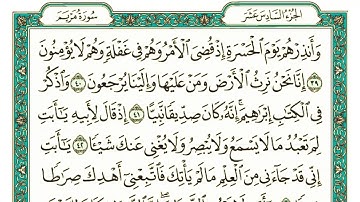 الجزء السادس عشر سورة مريم
وَأَنذِرْهُمْ يَوْمَ ٱلْحَسْرَةِ إِذْ قُضِىَ ٱلْأَمْرُ وَهُمْ فِى غَفْلَةٍ وَهُمْ لَا يُؤْمِنُونَ
٣٩ إِنَّا نَحْنُ نَرِثُ ٱلْأَرْضَ وَمَنْ عَلَيْهَا وَإِلَيْنَا يُرْجَعُونَ ٤٠ وَٱذْكُرْ
فِى ٱلْكِتَٰبِ إِبْرَٰهِيمَ ۚ إِنَّهُۥ كَانَ صِدِّيقًا نَّبِيًّا ٤١ إِذْ قَالَ لِأَبِيهِ يَٰٓأَبَتِ
لِمَ تَعْبُدُ مَا لَا يَسْمَعُ وَلَا يُبْصِرُ وَلَا يُغْنِى عَنكَ شَيْـًٔا ٤٢ يَٰٓأَبَتِ
إِنِّى قَدْ جَآءَنِى مِنَ ٱلْعِلْمِ مَا لَمْ يَأْتِكَ فَٱتَّبِعْنِىٓ أَهْدِكَ صِرَٰطًا